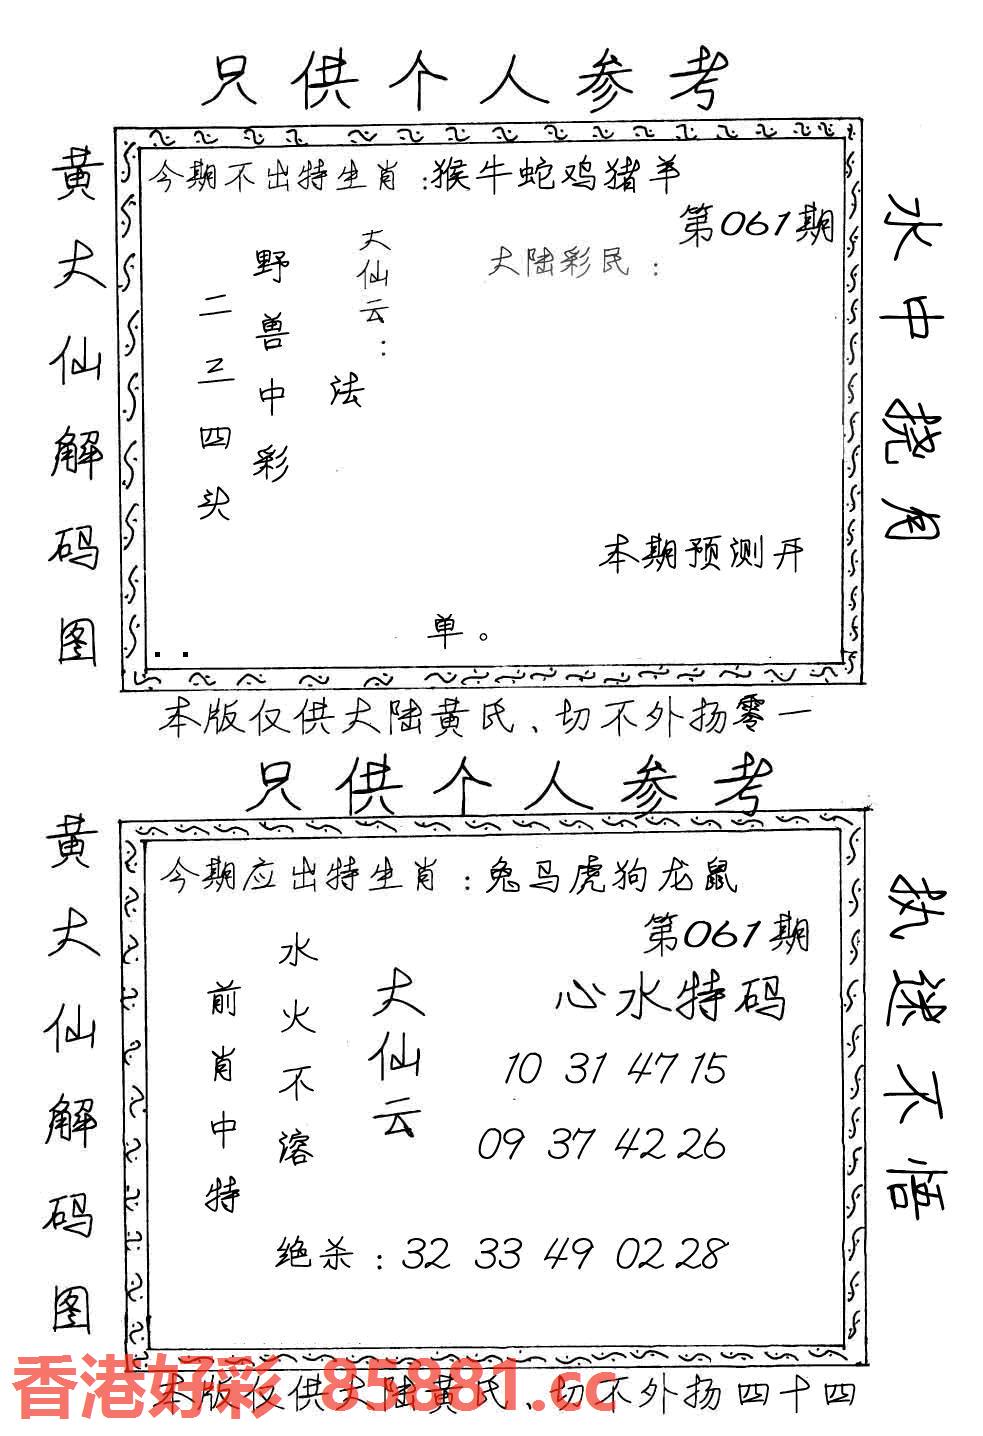 只供个人参考
黄大仙解码图
今期不出特生肖:猴牛蛇鸡猪羊
第061期
大陆彩民:
大仙云:
法
野兽中彩
二三四头
本期预测开
单。
水中捞月
本版仅供大陆黄氏、切不外扬零一
只供个人参考
黄大仙解码图
今期应出特生肖:兔马虎狗龙鼠
第061期
心水特码
10 31 47 15
09 37 42 26
大仙云
水火不溶
前肖中特
绝杀:32 33 49 02 28
执迷不悟
香港好彩 85881.cc
本版仅供大陆黄氏、切不外扬四十四